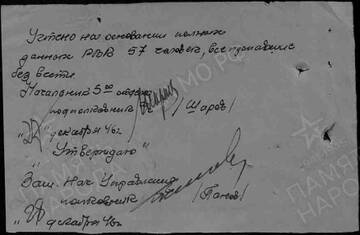 Учтено на основании полных
данных РВК 57 человек, все пропавшие
без вести.
Начальник 5го отдела
подполковник /Шаров/
"27" декабря 46г.
"Утверждаю"
Зам. Нач Управления
полковник /Панов/
"28" декабря 46г.
МО РФ
ПАМЯТЬ
НАРОДА